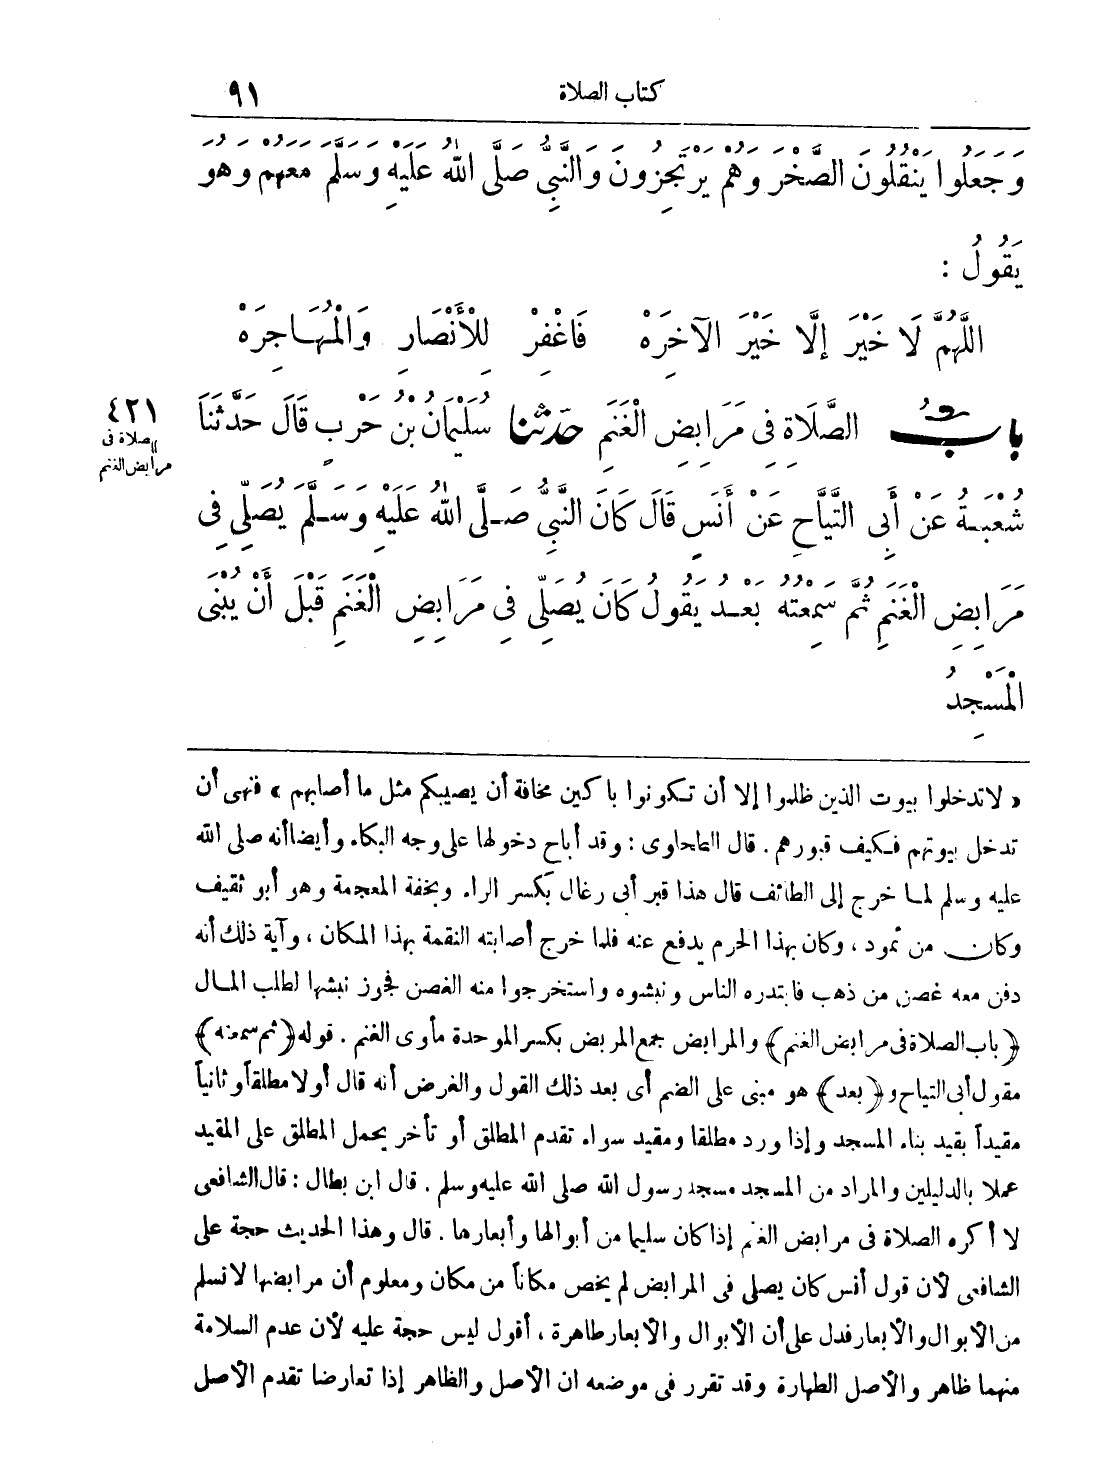 كتاب الصلاة ٩١
وَجَعَلُوا يَنْقُلُونَ الصَّخْرَ وَهُمْ يَرْتَجِزُونَ وَالنَّبِيُّ صَلَّى اللهُ عَلَيْهِ وَسَلَّمَ مَعَهُمْ وَهُوَ
يَقُولُ :
اللَّهُمَّ لَا خَيْرَ إلَّا خَيْرَ الآخِرَهْ فَاغْفِرْ لِلْأَنْصَارِ وَالْمُهَاجِرَهْ
بابُ الصَّلَاةِ فِى مَرَابِضِ الْغَنَمِ حَدَّثَنَا سُلَيْمَانُ بْنُ حَرْبٍ قَالَ حَدَّثَنَا
٤٢١
الصلاة فى
مرابض الغنم
شُعْبَةُ عَنْ أَبِى التَّيَّاحِ عَنْ أَنَسٍ قَالَ كَانَ النَّبِيُّ صَلَّى اللهُ عَلَيْهِ وَسَلَّمَ يُصَلِّى فِى
مَرَابِضِ الْغَنَمِ ثُمَّ سَمِعْتُهُ بَعْدُ يَقُولُ كَانَ يُصَلِّى فِى مَرَابِضِ الْغَنَمِ قَبْلَ أَنْ يُبْنَى
الْمَسْجِدُ
« لا تدخلوا بيوت الذين ظلموا إلا أن تكونوا باكين مخافة أن يصيبكم مثل ما أصابهم » فنهى أن
تدخل بيوتهم فكيف قبورهم . قال الطحاوى : وقد أباح دخولها على وجه البكاء وأيضا أنه صلى الله
عليه وسلم لما خرج إلى الطائف قال هذا قبر أبى رغال بكسر الراء وبخفة المعجمة وهو أبو ثقيف
وكان من ثمود ، وكان بهذا الحرم يدفع عنه فلما خرج أصابته النقمة بهذا المكان ، وآية ذلك أنه
دفن معه غصن من ذهب فابتدره الناس ونبشوه واستخرجوا منه الغصن فجوز نبشها لطلب المال
﴿ باب الصلاة فى مرابض الغنم ﴾ والمرابض جمع المربض بكسر الموحدة مأوى الغنم . قوله ﴿ ثم سمعته ﴾
مقول أبى التياح و ﴿ بعد ﴾ هو مبنى على الضم أى بعد ذلك القول والغرض أنه قال أولا مطلقاً وثانياً
مقيداً بقيد بناء المسجد وإذا ورد مطلقا ومقيد سواء تقدم المطلق أو تأخر يحمل المطلق على المقيد
عملا بالدليلين والمراد من المسجد مسجد رسول الله صلى الله عليه وسلم . قال ابن بطال : قال الشافعى
لا أكره الصلاة فى مرابض الغنم إذا كان سليما من أبوالها وأبعارها . قال وهذا الحديث حجة على
الشافعى لأن قول أنس كان يصلى فى المرابض لم يخص مكاناً من مكان ومعلوم أن مرابضها لا تسلم
من الأبوال والأبعار فدل على أن الأبوال والأبعار طاهرة ، أقول ليس حجة عليه لأن عدم السلامة
منهما ظاهر والأصل الطهارة وقد تقرر فى موضعه ان الأصل والظاهر إذا تعارضا تقدم الأصل